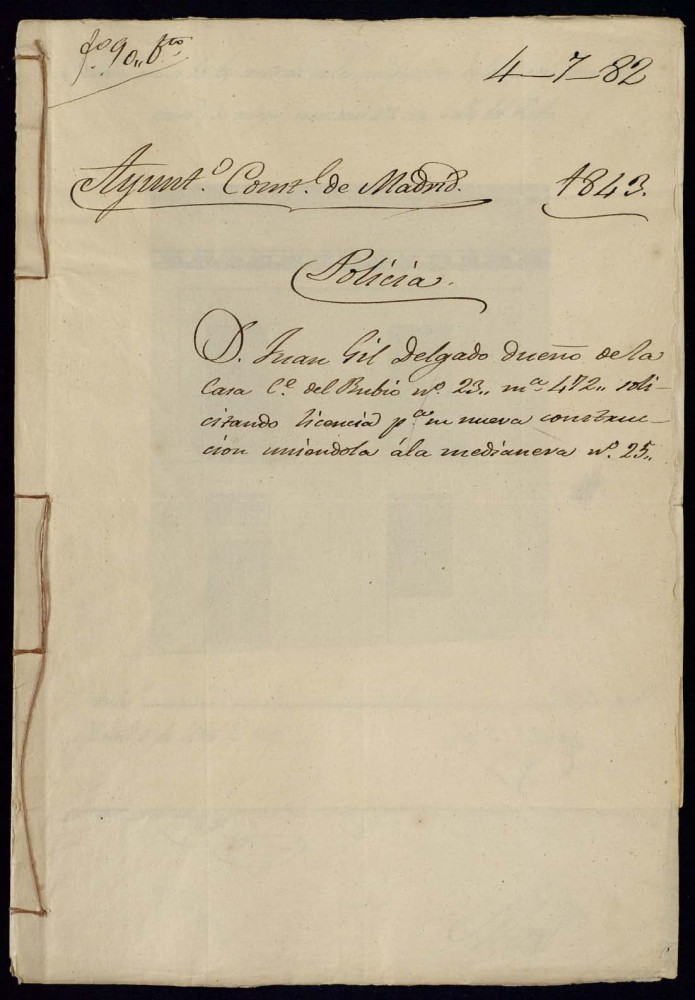 fo. 90,, bto
4-7-82
Ayunt.o Const.l de Madrid.
1843.
Policia.
D. Juan Gil Delgado dueño de la
Casa C.e del Rubio no. 23,, m.a 472,, soli-
citando licencia p.a su nueva construc-
cion uniendola á la medianera no. 25,,